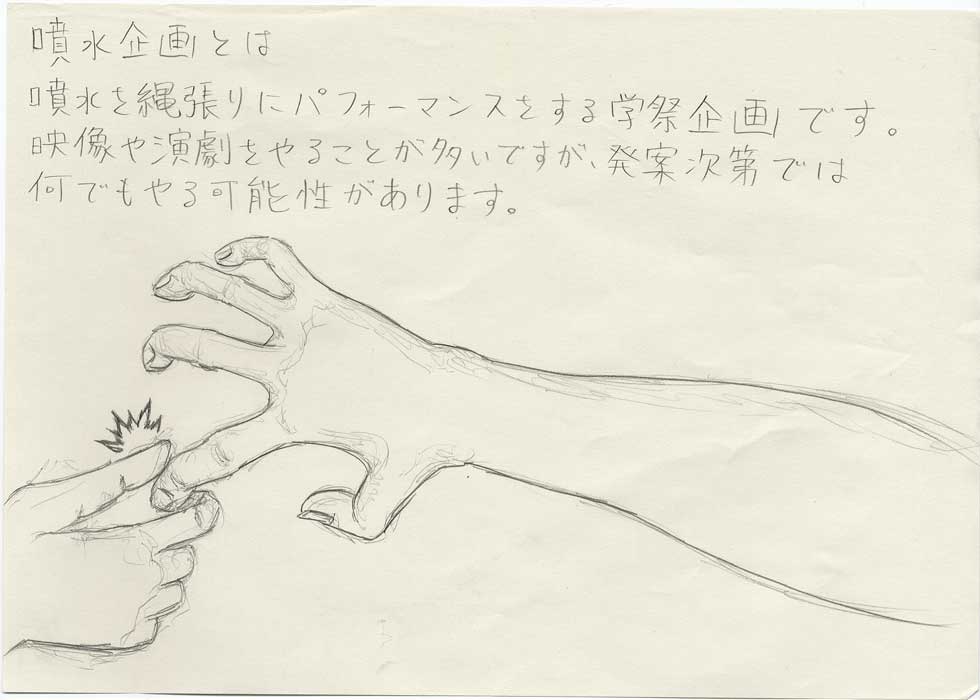 噴水企画とは
噴水を縄張りにパフォーマンスをする学祭企画です。
映像や演劇をやることが多いですが、発案次第では
何でもやる可能性があります。